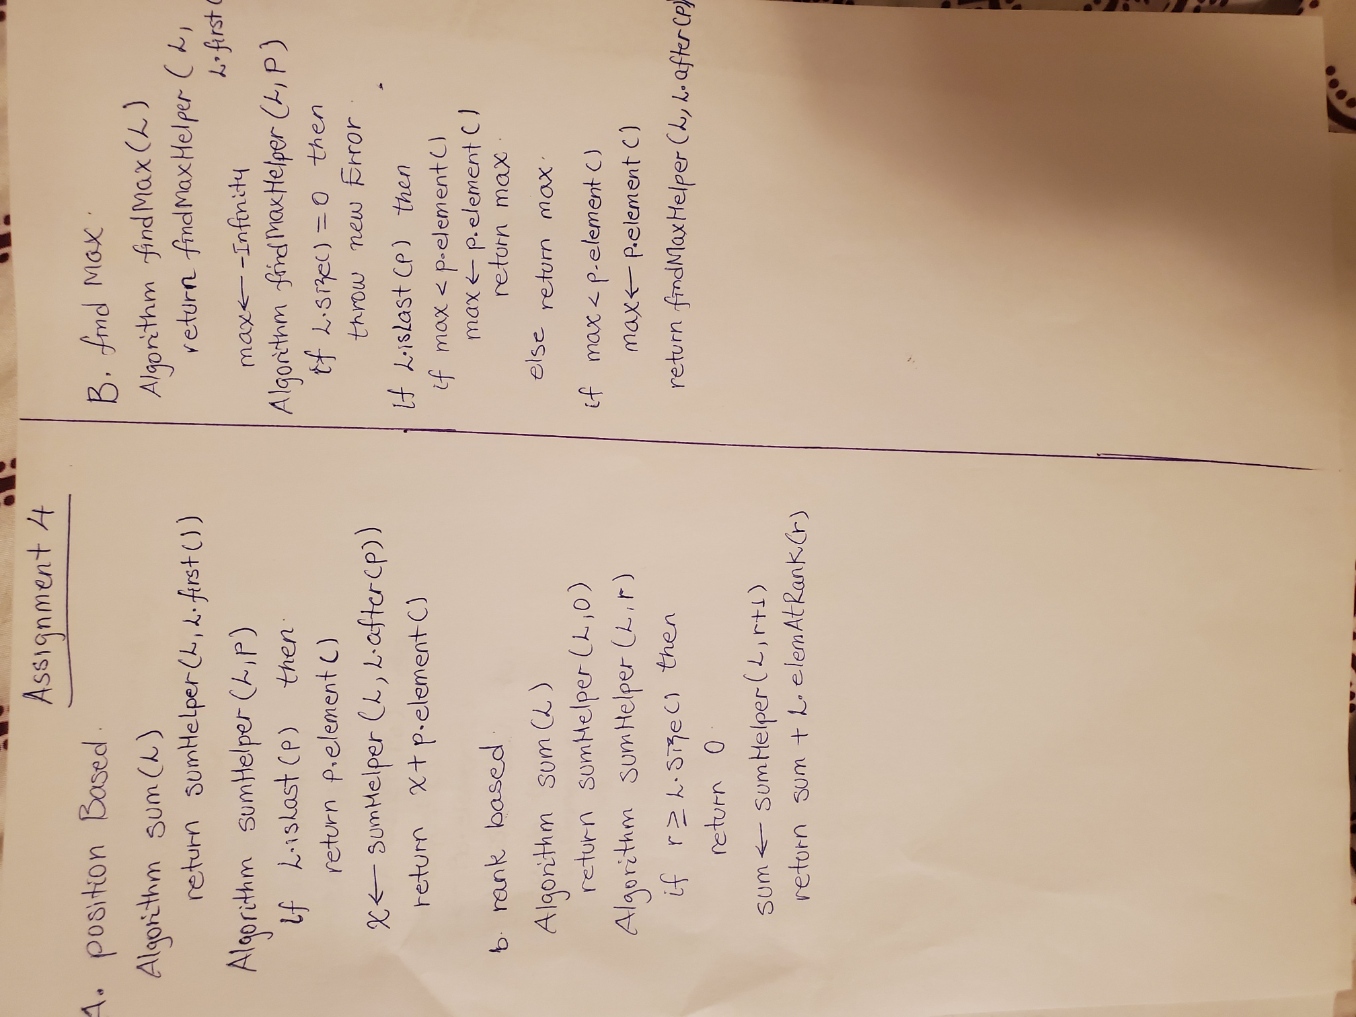 Assignment 4
A. position Based.
Algorithm sum(L)
return sumHelper(L, L.first())
Algorithm sumHelper(L,P)
if L.isLast(P) then
return p.element()
x ← sumHelper (L, L.after(p))
return x + p.element()
b. rank based.
Algorithm sum(L)
return sumHelper(L,0)
Algorithm sumHelper(L,r)
if r ≥ L.size() then
return 0
sum ← sumHelper(L,r+1)
return sum + L.elemAtRank(r)
B. find Max.
Algorithm findMax(L)
return findMaxHelper (L,
L.first(
max ← -Infinity
Algorithm findMaxHelper(L,P)
if L.size() = 0 then
throw new Error
If L.isLast(P) then
if max < p.element()
max ← p.element()
return max.
else return max.
if max < p.element()
max ← p.element()
return findMaxHelper (L, L.after(P)